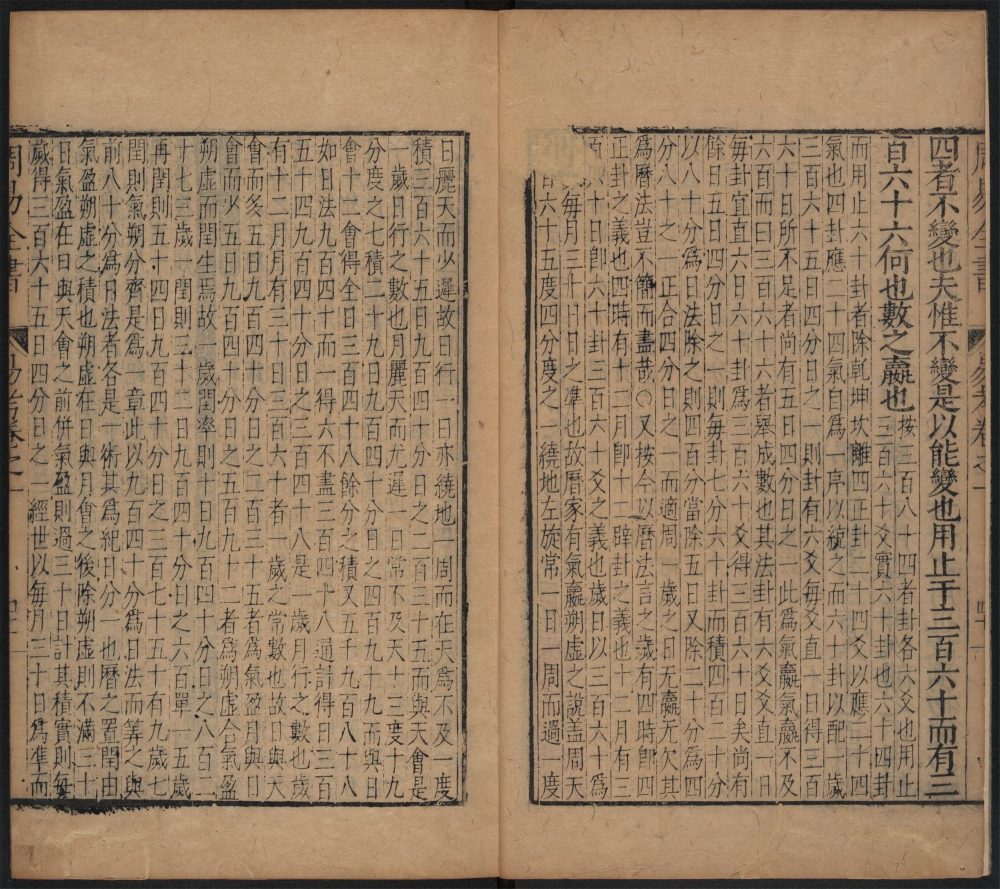 四者不變也夫惟不變是以能變也用止于三百六十而有三
百六十六何也數之贏也按三百八十四者卦各六爻也用止
三百六十爻實六十卦也六十四卦
而用止六十卦者除乾坤坎離四正卦二十四爻以應二十四
氣也四卦應二十四氣自爲一序以視之而六十卦以配一歲
三百六十五日四分日之一則卦有六爻每爻直一日得三百
六十日所不足者尚有五日四分日之一此爲氣贏氣贏不及
六百而曰三百六十六者舉成數也其法卦有六爻爻直一日
每卦宜直六日六十卦爲三百六十爻得三百六十日矣尚有
餘日五日四分日之一每日以八十分而積四百二十分
以八十分爲日法除之則四百分當除五日又除二十分爲四
分八十之一正合四分日之一而適周一歲之日無贏無欠其
爲曆法豈不簡而盡哉○又按今以曆法言之歲有四時卽四
正卦之義也四時有十二月卽十二辟卦之義也十二月有三
百六十日卽六十卦三百六十爻之義也歲日以三百六十爲
每月三十日之準也故曆家有氣贏朔虛之說盖周天
百六十五度四分度之一繞地左旋常一日一周而過一度
日麗天而少遲故日行一日亦繞地一周而在天爲不及一度
積三百六十五日九百四十分日之二百三十五而與天會是
一歲日行之數也月麗天而尤遲一日常不及天十三度十九
分度之七積二十九日九百四十分日之四百九十九而與日
會十二會得全日三百四十八餘分之積又五千九百八十八
如日法九百四十而一得六不盡三百四十八通計得日三百
五十四九百四十分日之三百四十八是一歲月行之數也歲
有十二月月有三十日三百六十者一歲之常數也故日與天
會而多五日九百四十分日之二百三十五者爲氣盈月與日
會而少五日九百四十分日之五百九十二者爲朔虛合氣盈
朔虛而閏生焉故一歲閏率則十日九百四十分日之八百二
十七三歲一閏則三十二日九百四十分日之六百單一五歲
再閏則五十四日九百四十分日之三百七十五十有九歲七
閏則氣朔分齊是爲一章此以九百四十分爲日法而筭之與
前八十分爲日法者各是一術其爲紀日分一也曆之置閏由
氣盈朔虛之積也朔虛在日與月會之後除朔虛則不滿三十
日氣盈在日與天會之前併氣盈則過三十日計其積實則每
歲得三百六十五日四分日之一經世以每月三十日爲準而
周易全書